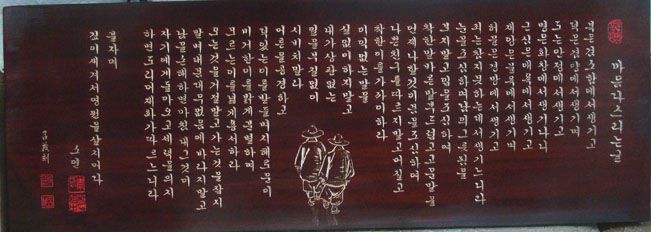 마음 다스리는 글
복은 검소함에서 생기고
덕은 겸양에서 생기며
도는 안정에서 생기고
명은 화창에서 생기나니
근심은 애욕에서 생기고
재앙은 물욕에서 생기며
허물은 경망에서 생기고
죄는 참지 못하는데서 생기느니라
눈을 조심하여 남의 그릇된 점을
보지 말고 입을 조심하여
착한 말 바른 말 부드럽고 고운 말을
언제나 할 것이며 몸을 조심하여
나쁜 친구를 따르지 말고 어질고
착한 이를 가까이 하라
이익 없는 말을
실없이 하지 말고
내가 상관 없는
일을 부질없이
시비치 말라
어른을 공경하고
덕 있는 이를 받들며 지혜로운 이
모르는 이를 너그럽게 용서하라
오는 것을 거절말고 가는 것을 잡지
말며 내 몸 대우 없음에 바라지 말고
남을 해하면 마침내 그것이
자기에게 돌아오고 세력을 의지
하면 도리어 재화가 따르느니라
불자여
깊이 새겨서 영원을 살지어다